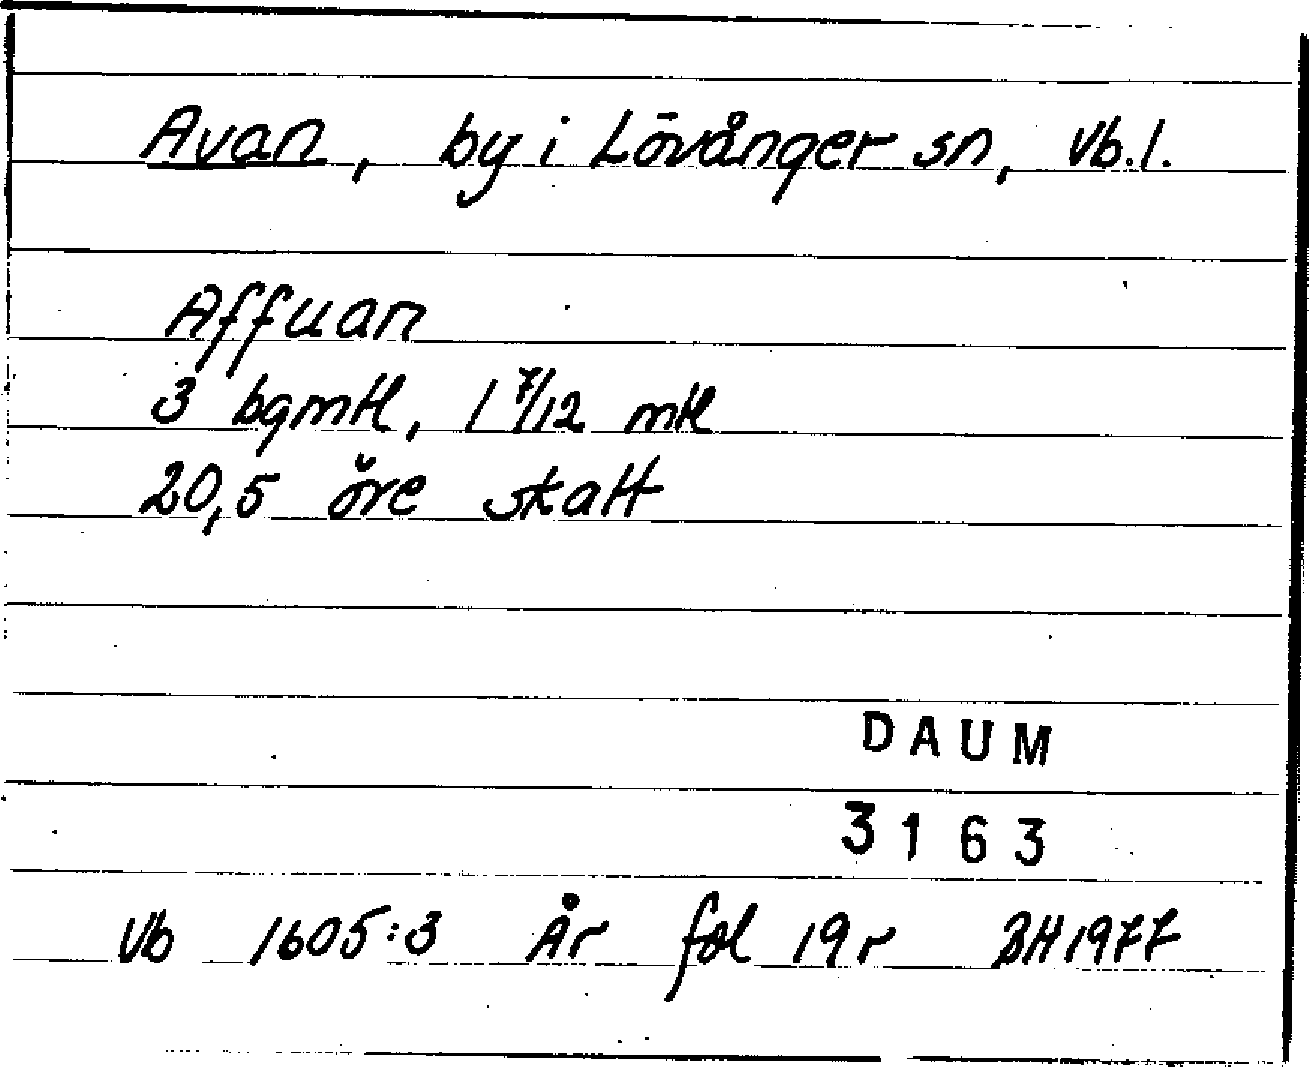 Avan, by i Lövånger sn, Vb.l.
Affuan
3 bgmtl, 1 7/12 mtl
20,5 öre skatt
DAUM
3163
Vb 1605:3 År fol 19r BH1977